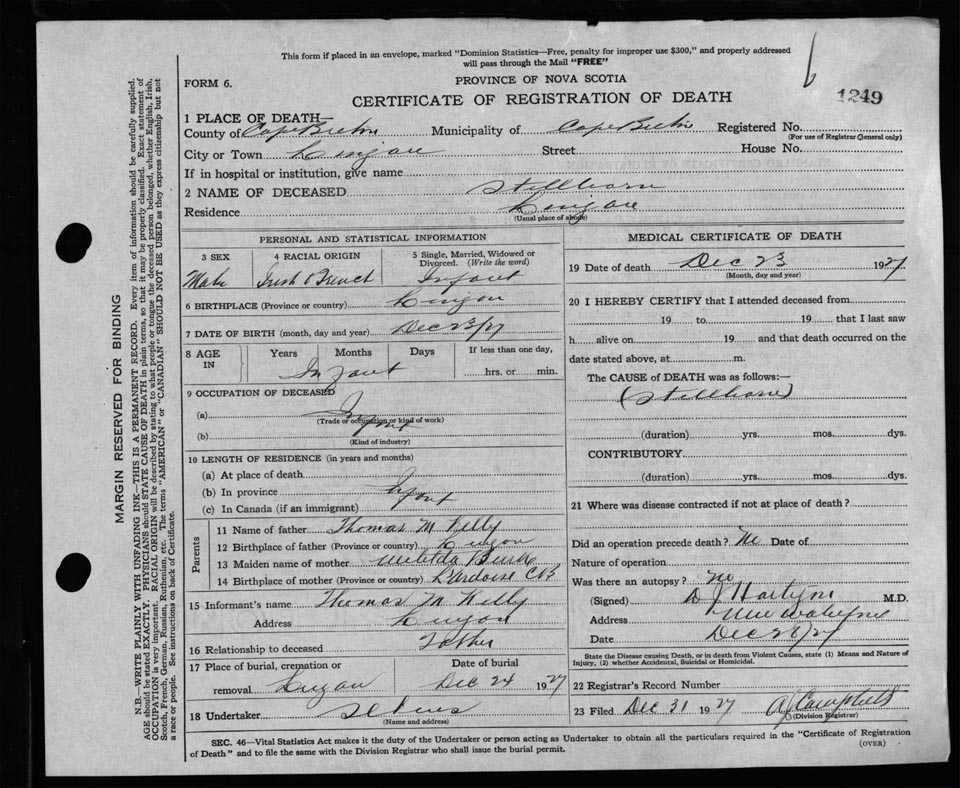 This form if placed in an envelope, marked "Dominion Statistics—Free, penalty for improper use $300," and properly addressed
will pass through the Mail "FREE"
FORM 6.
PROVINCE OF NOVA SCOTIA
CERTIFICATE OF REGISTRATION OF DEATH
1249
1 PLACE OF DEATH—
County of Cape Breton Municipality of Cape Breton Registered No.
(For use of Registrar General only)
City or Town Street House No.
If in hospital or institution, give name
2 NAME OF DECEASED Stillborn
Residence
(Usual place of abode)
PERSONAL AND STATISTICAL INFORMATION
3 SEX
Male
4 RACIAL ORIGIN
Irish & French
5 Single, Married, Widowed or
Divorced. (Write the word)
Infant
6 BIRTHPLACE (Province or country)
7 DATE OF BIRTH (month, day and year) Dec 23/27
8 AGE
IN
Years Months Days
Infant
If less than one day,
hrs. or min.
9 OCCUPATION OF DECEASED
(a) Infant
(Trade or occupation or kind of work)
(b)
(Kind of industry)
10 LENGTH OF RESIDENCE (in years and months)
(a) At place of death
(b) In province Infant
(c) In Canada (if an immigrant)
Parents
11 Name of father Thomas M Kelly
12 Birthplace of father (Province or country)
13 Maiden name of mother Matilda
14 Birthplace of mother (Province or country) L'Ardoise CB
15 Informant's name Thomas M Kelly
Address
16 Relationship to deceased Father
17 Place of burial, cremation or
removal
Date of burial
Dec 24 1927
18 Undertaker
(Name and address)
MEDICAL CERTIFICATE OF DEATH
19 Date of death Dec 23 1927
(Month, day and year)
20 I HEREBY CERTIFY that I attended deceased from
19 to 19 that I last saw
h alive on 19 and that death occurred on the
date stated above, at m.
The CAUSE of DEATH was as follows:—
(Stillborn)
(duration) yrs. mos. dys.
CONTRIBUTORY
(duration) yrs. mos. dys.
21 Where was disease contracted if not at place of death?
Did an operation precede death? No Date of
Nature of operation
Was there an autopsy? No
(Signed) M.D.
Address
Date Dec 28/27
State the Disease causing Death, or in death from Violent Causes, state (1) Means and Nature of
Injury, (2) whether Accidental, Suicidal or Homicidal.
22 Registrar's Record Number
23 Filed Dec 31 1927 Campbell
(Division Registrar)
SEC. 46—Vital Statistics Act makes it the duty of the Undertaker or person acting as Undertaker to obtain all the particulars required in the "Certificate of Registration
of Death" and to file the same with the Division Registrar who shall issue the burial permit.
(OVER)
MARGIN RESERVED FOR BINDING
N.B.—WRITE PLAINLY WITH UNFADING INK—THIS IS A PERMANENT RECORD. Every item of information should be carefully supplied.
AGE should be stated EXACTLY. PHYSICIANS should STATE CAUSE OF DEATH in plain terms, so that it may be properly classified. Exact statement of
OCCUPATION is very important. RACIAL ORIGIN will be described by stating to what people or tongue the deceased person belonged, whether English, Irish,
Scotch, French, German, Russian, Ruthenian, etc. The terms "AMERICAN" or "CANADIAN" SHOULD NOT BE USED as they express citizenship but not
a race or people. See instructions on back of Certificate.